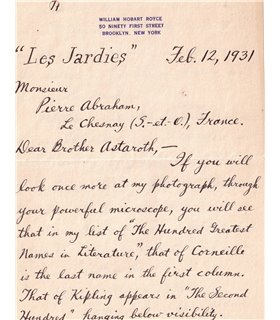 WILLIAM HOBART ROYCE
50 NINETY FIRST STREET
BROOKLYN, NEW YORK
"Les Jardies" Feb. 12, 1931
Monsieur
Pierre Abraham,
Le Chesnay (S.-et-O.), France.
Dear Brother Astaroth,—
If you will
look once more at my photograph, through
your powerful microscope, you will see
that in my list of The Hundred Greatest
Names in Literature," that of Corneille
is the last name in the first column.
That of Kipling appears in "The Second
Hundred" hanging below visibility.